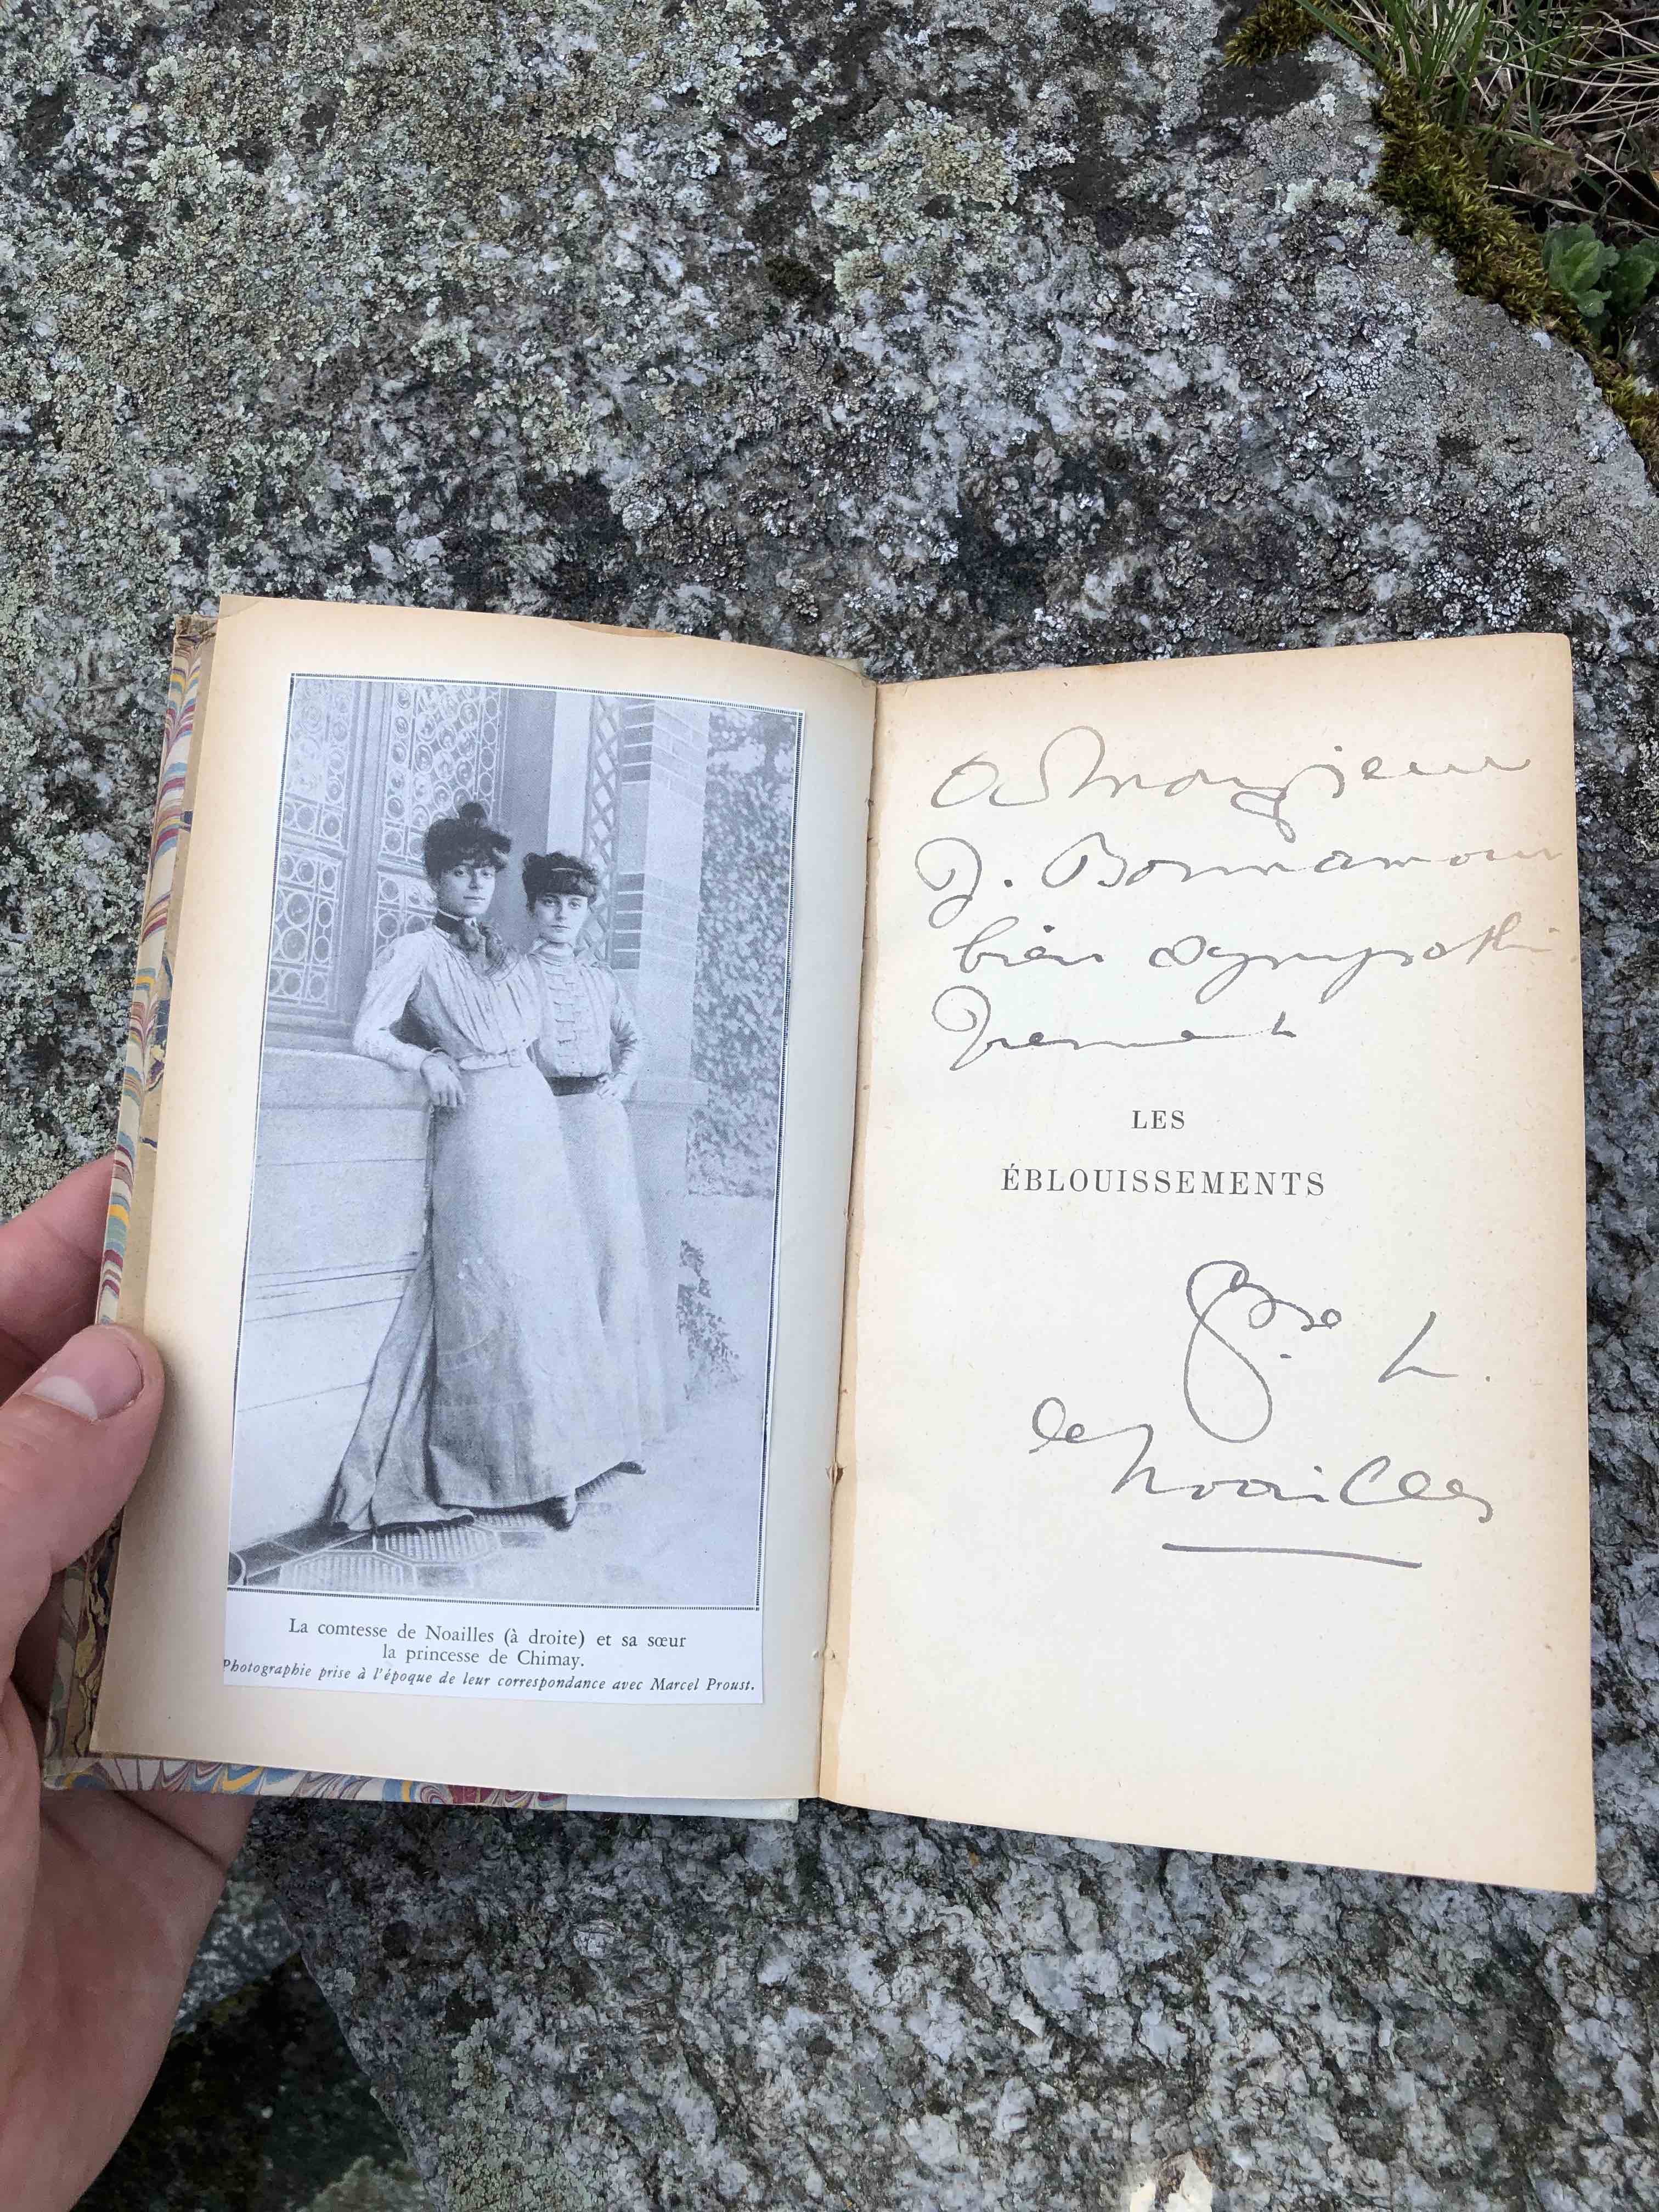 La comtesse de Noailles (à droite) et sa sœur
la princesse de Chimay.
Photographie prise à l'époque de leur correspondance avec Marcel Proust.
A Monsieur
J. Bonnamour
bien sympathi
quement
LES
ÉBLOUISSEMENTS
Ctsse
de Noailles